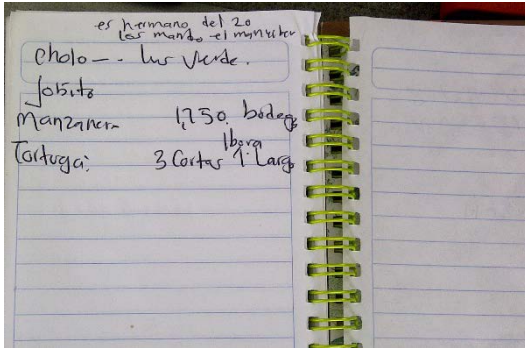 es hermano del 20
los mando el manester
cholo -- lus verde.
Jobito
Manzanera 1,750. bodega
Ibora
Tortuga: 3 Cortas 1 Larga